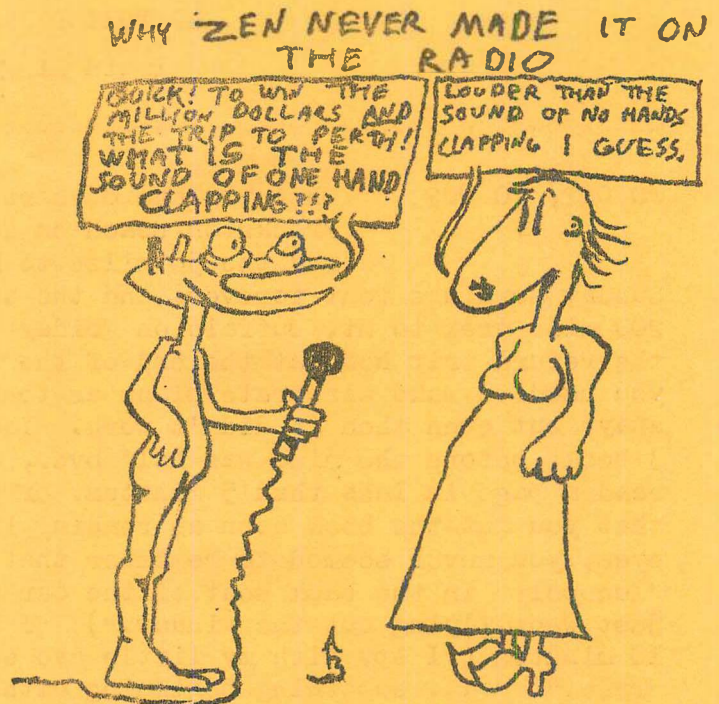 WHY ZEN NEVER MADE IT ON
THE RADIO
QUICK! TO WIN THE
MILLION DOLLARS AND
THE TRIP TO PERTH!
WHAT IS THE
SOUND OF ONE HAND
CLAPPING?!?
LOUDER THAN THE
SOUND OF NO HANDS
CLAPPING I GUESS.